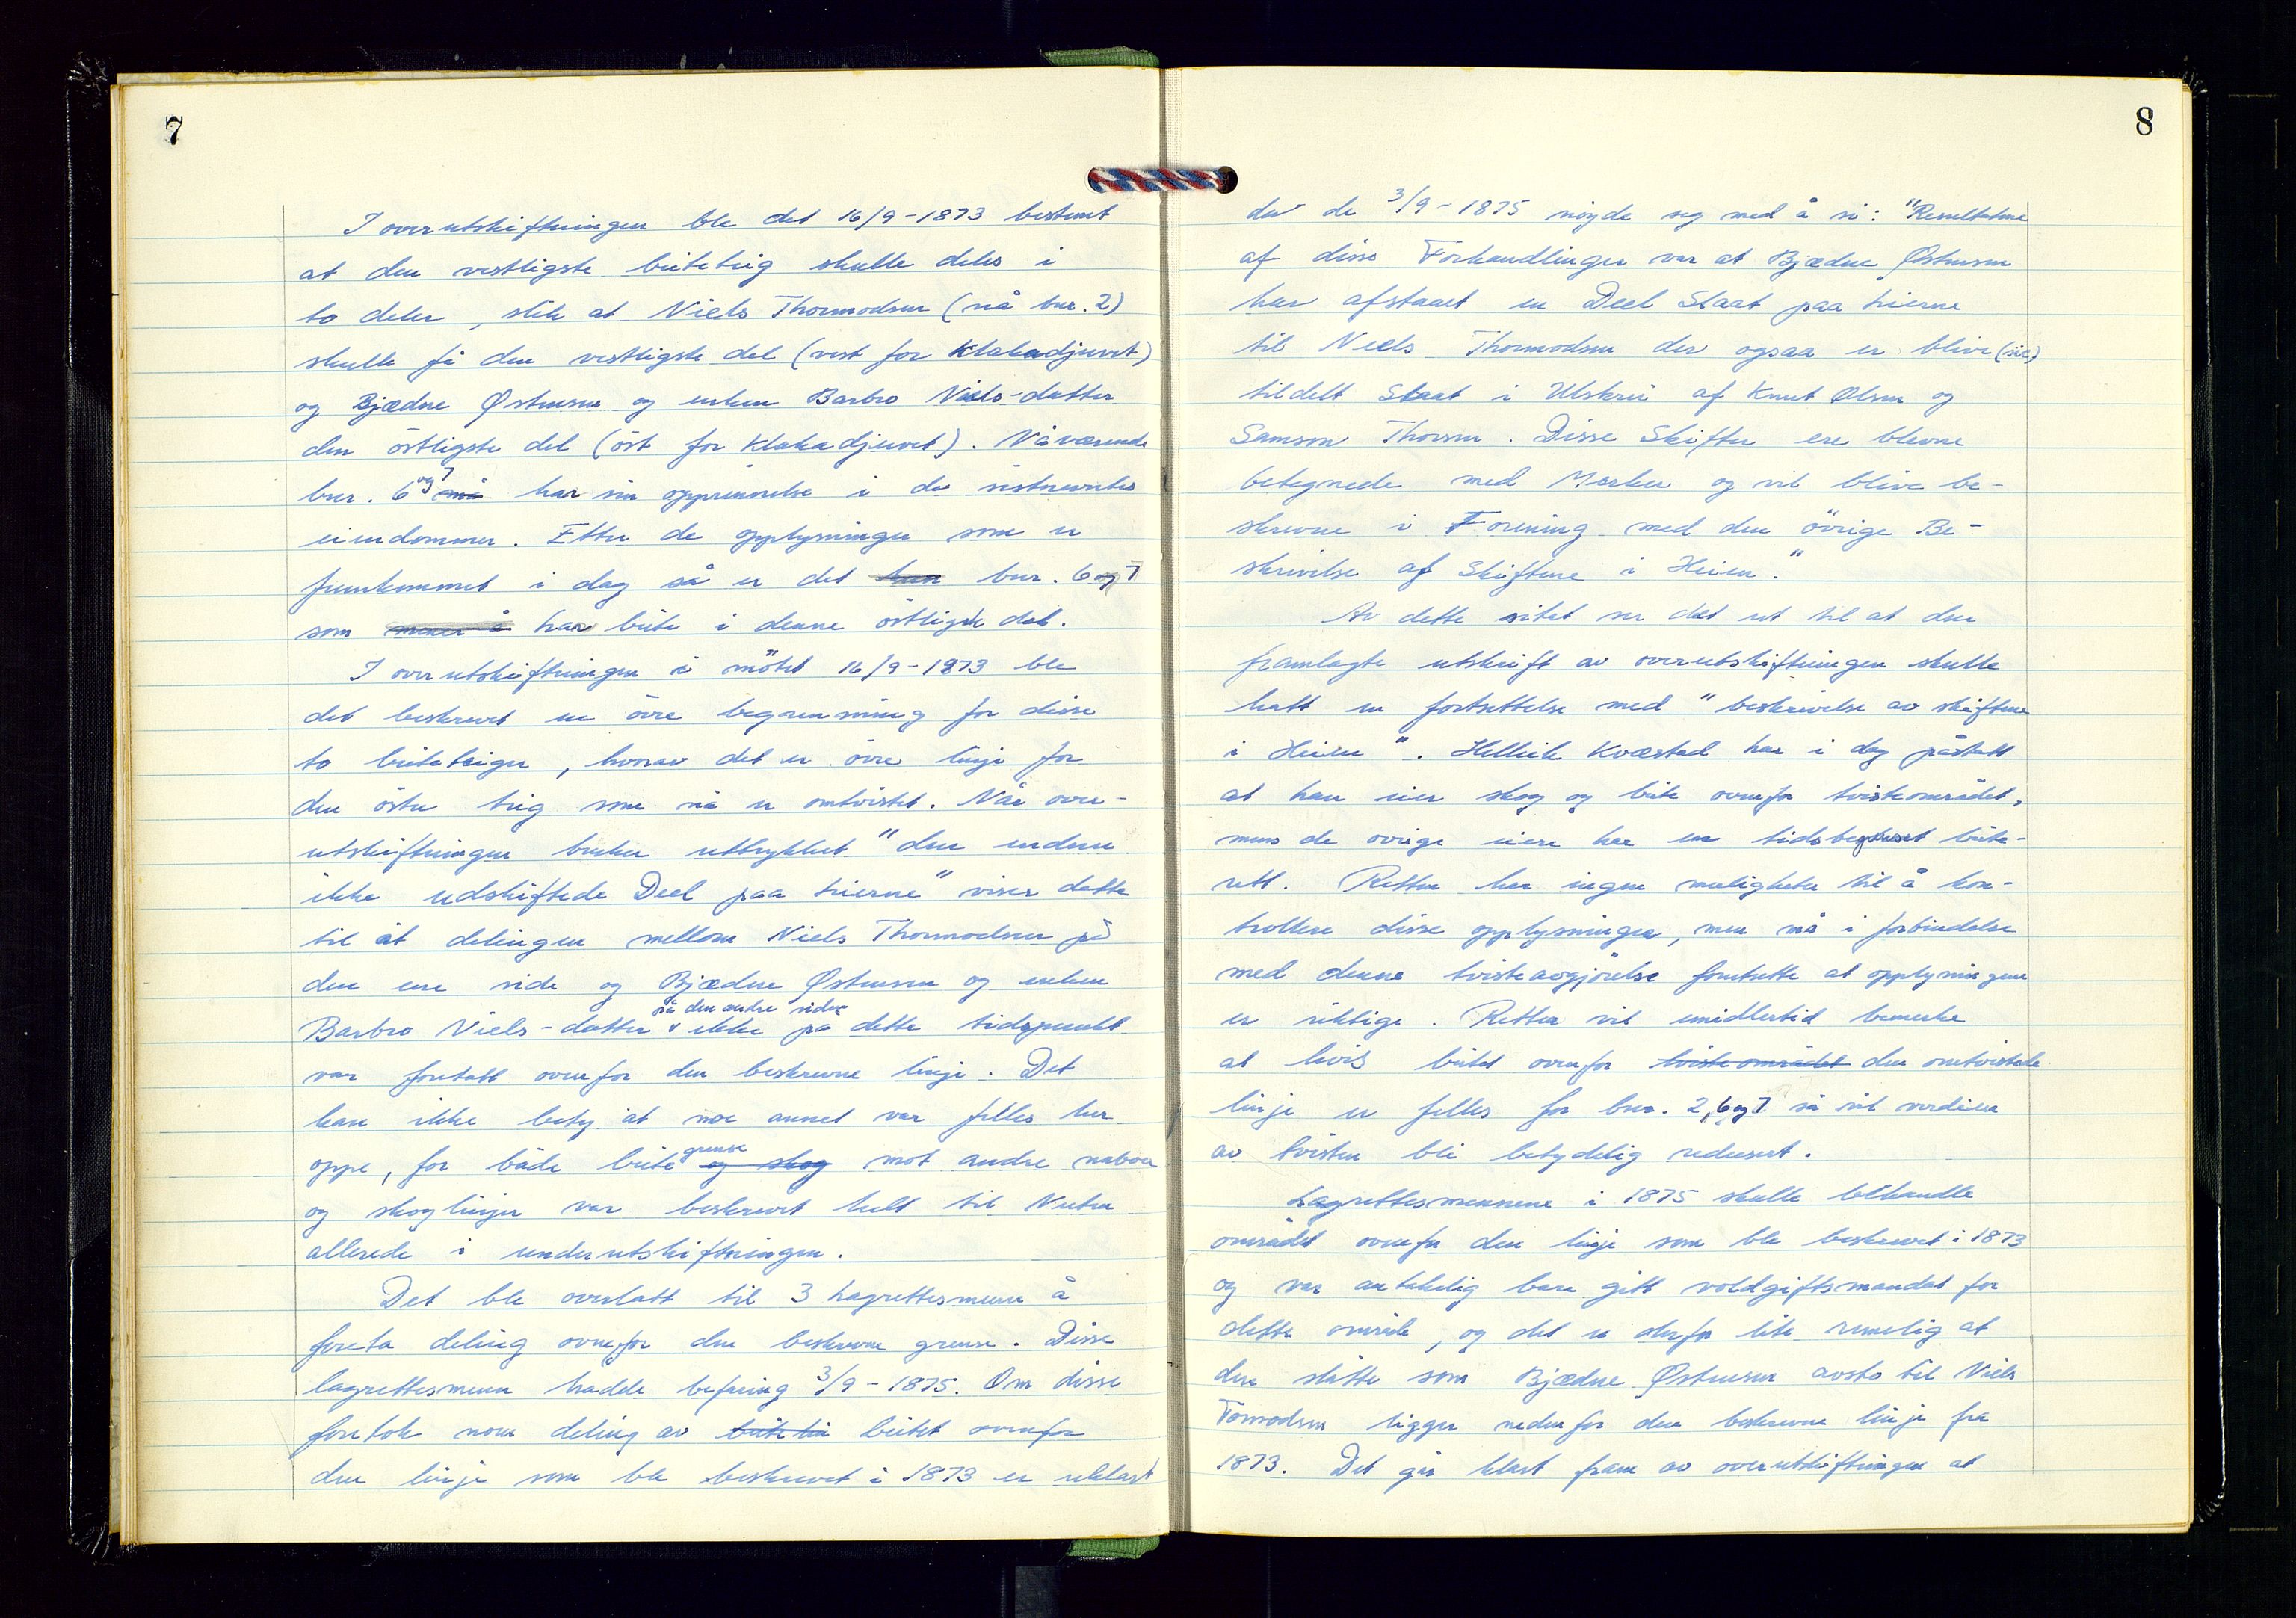 7
I overutskiftningen ble det 16/9-1873 bestemt
at den vestligste beiteteig skulle deles i
to deler, slik at Niels Thormodsen (nå bnr. 2)
skulle få den vestligste del (vest for Klakadjuvet)
og Bjædne Østensen og enken Barbro Niels-datter
den östligste del (öst for Klakadjuvet). Nåværende
bnr. 6 og 7 må har sin opprinnelse i de sistnevnte
eiendommer. Etter de opplysninger som er
fremkommet i dag så er det bnr. 6 og 7
som mener å har beite i denne östligste del.
I overutskiftningen i mötet 16/9-1873 ble
det beskrevet en övre begrensning for disse
to beiteteiger, hvorav det er övre linje for
den östre teig som nå er omtvistet. Når over-
utskiftningen bruker uttrykket "den endnu
ikke udskiftede Deel paa Lierne" viser dette
til at delingen mellom Niels Thormodsen på
den ene side og Bjædne Østensen og enken
Barbro Niels-datter på den andre siden ikke på dette tidspunkt
var foretatt ovenfor den beskrevne linje. Det
kan ikke bety at noe annet var felles her
oppe, for både beite grense og skog mot andre naboer
og skoglinjer var beskrevet helt til Nuten
allerede i underutskiftningen.
Det ble overlatt til 3 lagrettesmenn å
foreta deling ovenfor den beskrevne grense. Disse
lagrettesmenn hadde befaring 3/9-1875. Om disse
foretok noen deling av beitet ovenfor
den linje som ble beskrevet i 1873 er uklart
8
da de 3/9-1875 nöyde seg med å si: "Resultatene
af disse Forhandlinger var at Bjædne Østensen
har afstaaet en Deel Slaat paa Lierne
til Niels Thormodsen der ogsaa er blive (sic)
tildelt Slaat i af Knut Olsen og
Samson Thorsen. Disse Skifter ere blevne
betegnede med Merker og vil blive be-
skrevne i Forening med den övrige Be-
skrivelse af Skiftene i Heien."
Av dette sitat ser det ut til at den
framlagte utskrift av overutskiftningen skulle
hatt en fortsettelse med "beskrivelse av skiftene
i Heien". Hellik Kvæstad har i dag påstått
at han eier skog og beite ovenfor tvisteområdet,
mens de övrige eiere har en tidsbegrenset beite-
rett. Retten har ingen muligheter til å kon-
trollere disse opplysninger, men må i forbindelse
med denne tvisteavgjörelse forutsette at opplysningene
er riktige. Retten vil imidlertid bemerke
at hvis beitet ovenfor tvisteområdet den omtvistede
linje er felles for bnr. 2, 6 og 7 så vil verdien
av tvisten bli betydelig redusert.
Lagrettesmennene i 1875 skulle behandle
området ovenfor den linje som ble beskrevet i 1873
og var antakelig bare gitt voldgiftsmandat for
dette område, og det er derfor lite rimelig at
den slåtte som Bjædne Østensen avsto til Niels
Tormodsen ligger nedenfor den beskrevne linje fra
1873. Det går klart fram av overutskiftningen at